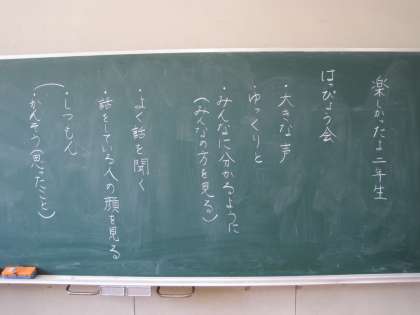 楽しかったよ二年生
はっぴょう会
・大きな声
・ゆっくりと
・みんなに分かるように
(みんなの方を見る。)
・よく話を聞く
・話をしている人の顔を見る
・しつもん
・かんそう(思ったこと)